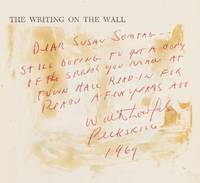 THE WRITING ON THE WALL
DEAR SUSAN SONTAG--
STILL HOPING TO GET A COPY
OF THE SPEECH YOU MADE AT
TOWN HALL READ-IN FOR
PEACE A FEW YEARS AGO
Walter Lowenfels
PEEKSKILL
1969